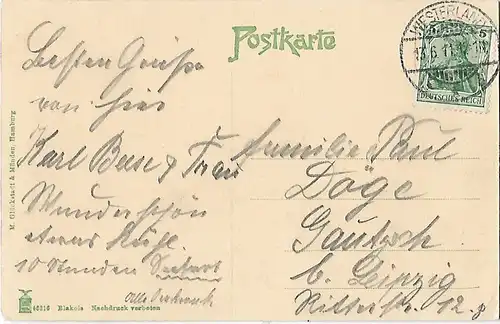 Postkarte
WESTERLAND
13.6.11
DEUTSCHES REICH
Besten Grüße
von hier
Karl Beese & Frau
Wunderschön
etwas kühl.
10 Stunden Seefahrt
Familie Paul
Döge
Gautzsch
b. Leipzig
Ritterstr 12.
M. Glückstadt & Münden, Hamburg
Elakola Nachdruck verboten